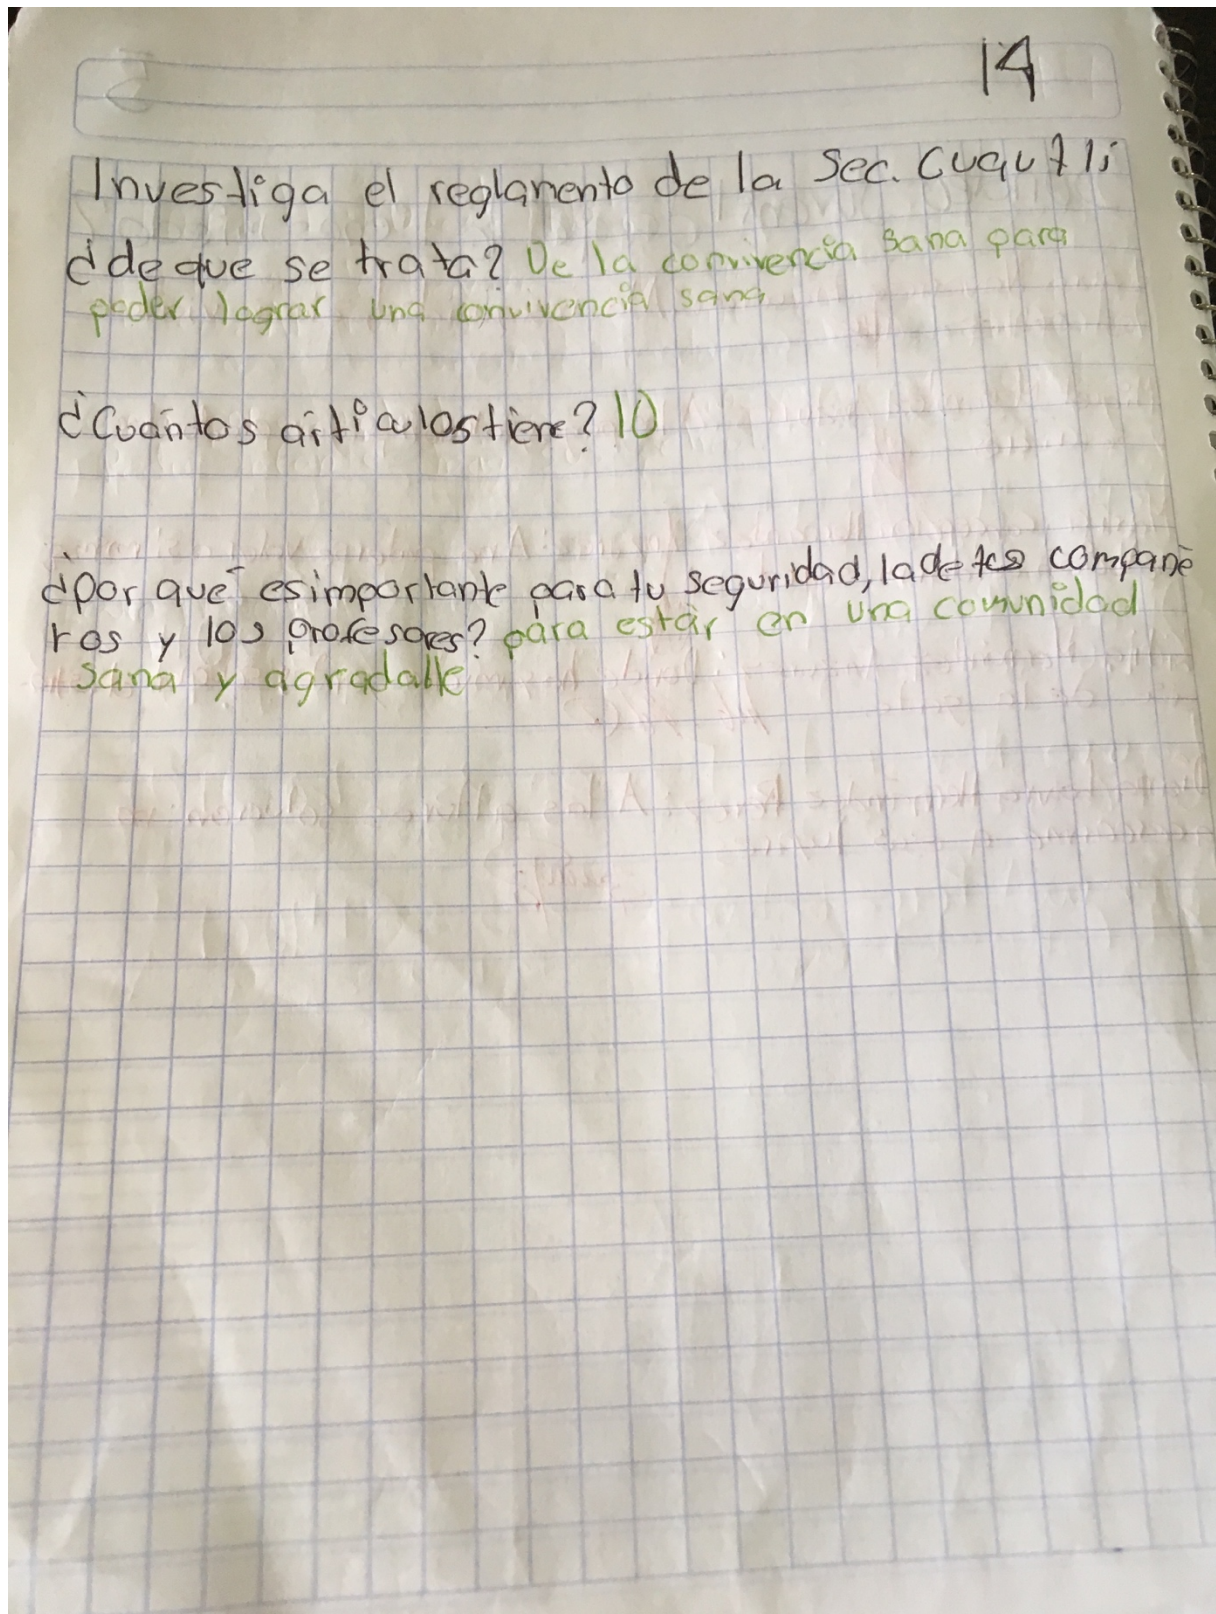 14
Investiga el reglamento de la Sec. Cuautli
¿de que se trata? De la convivencia sana para
poder lograr una convivencia sana
¿Cuántos artículos tiene? 10
¿por que es importante para tu seguridad, la de tus compañe
ros y los profesores? para estar en una comunidad
sana y agradable